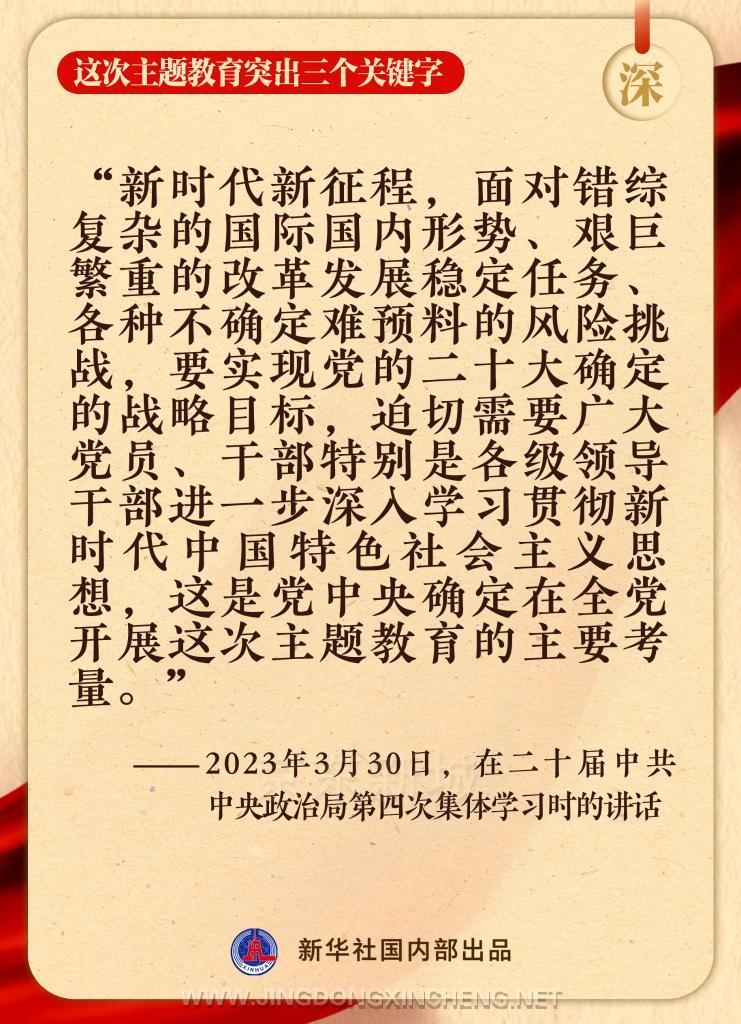 这次主题教育突出三个关键字
深
“新时代新征程，面对错综
复杂的国际国内形势、艰巨
繁重的改革发展稳定任务、
各种不确定难预料的风险挑
战，要实现党的二十大确定
的战略目标，迫切需要广大
党员、干部特别是各级领导
干部进一步深入学习贯彻新
时代中国特色社会主义思
想，这是党中央确定在全党
开展这次主题教育的主要考
量。”
——2023年3月30日，在二十届中共
中央政治局第四次集体学习时的讲话
XINHUA
新华社国内部出品
WWW.JINGDONGXINCHENG.NET